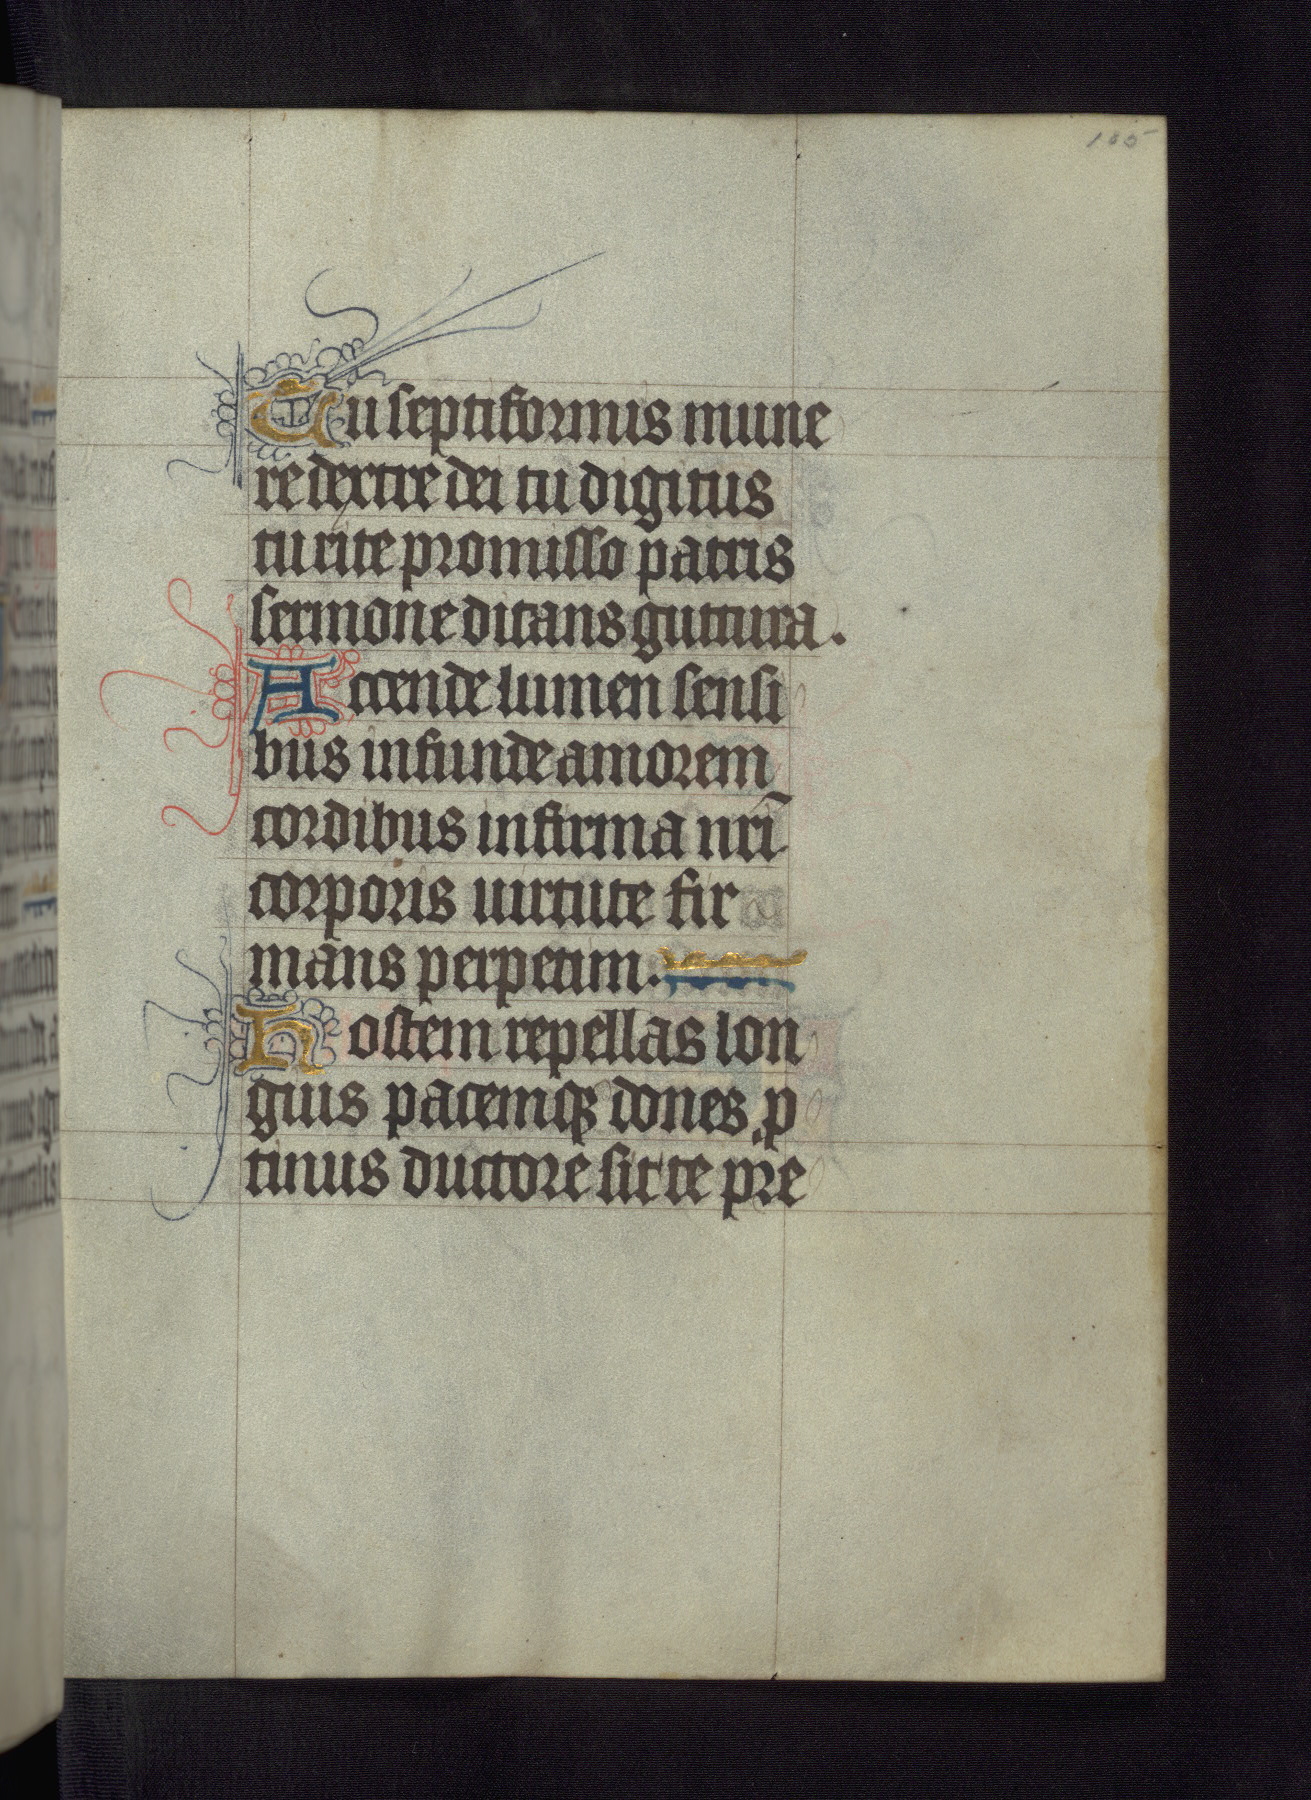 105
Tu septiformis mune
re dextre dei tu digitus
tu rite promisso patris
sermone ditans guttura.
Accende lumen sensi
bus infunde amorem
cordibus infirma nr̄i
corporis uirtute fir
mans perpetim.
Hostem repellas lon
gius pacemqꝫ dones ꝓ
tinus ductore sic te pre